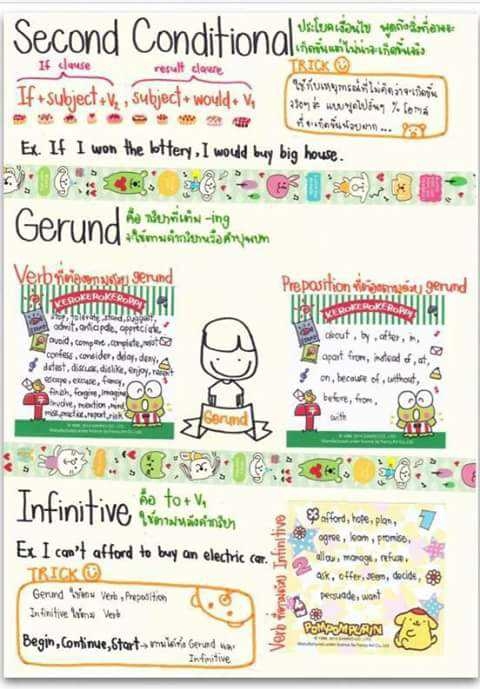 Second Conditional
ประโยคเงื่อนไข พูดถึงสิ่งที่อาจจะ
เกิดขึ้นแต่ไม่น่าจะเกิดขึ้นจริง
If clause result clause
If + subject + V2 , subject + would + V1
TRICK
ใช้กับเหตุการณ์ที่ไม่คิดว่าจะเกิดขึ้น
จริงๆ ค่ะ แบบพูดไปงั้นๆ % โอกาส
ที่จะเกิดขึ้นน้อยมาก...
Ex. If I won the lottery, I would buy big house.
Gerund
คือ กริยาที่เติม -ing
จะใช้ตามคำกริยาหรือคำบุพบท
Verb ที่ต้องตามด้วย gerund
KEROKEROKEROPPI
stop, tolerate, stand, suggest,
admit, anticipate, appreciate,
avoid, compare, complete, resist
confess, consider, delay, deny,
detest, discuss, dislike, enjoy, resent
escape, excuse, fancy,
finish, forgive, imagine
involve, mention, mind
miss, practice, report, risk
Gerund
Preposition ที่ต้องตามด้วย gerund
KEROKEROKEROPPI
about, by, after, in,
apart from, instead of, at,
on, because of, without,
before, from,
with
Infinitive
คือ to + V1
ใช้ตามหลังคำกริยา
Ex. I can't afford to buy an electric car.
TRICK
Gerund ใช้ตาม Verb, Preposition
Infinitive ใช้ตาม Verb
Begin, Continue, Start → ตามได้ทั้ง Gerund และ
Infinitive
Verb ที่ตามด้วย Infinitive
afford, hope, plan,
agree, learn, promise,
allow, manage, refuse,
ask, offer, seem, decide,
persuade, want
POMPOMPURIN